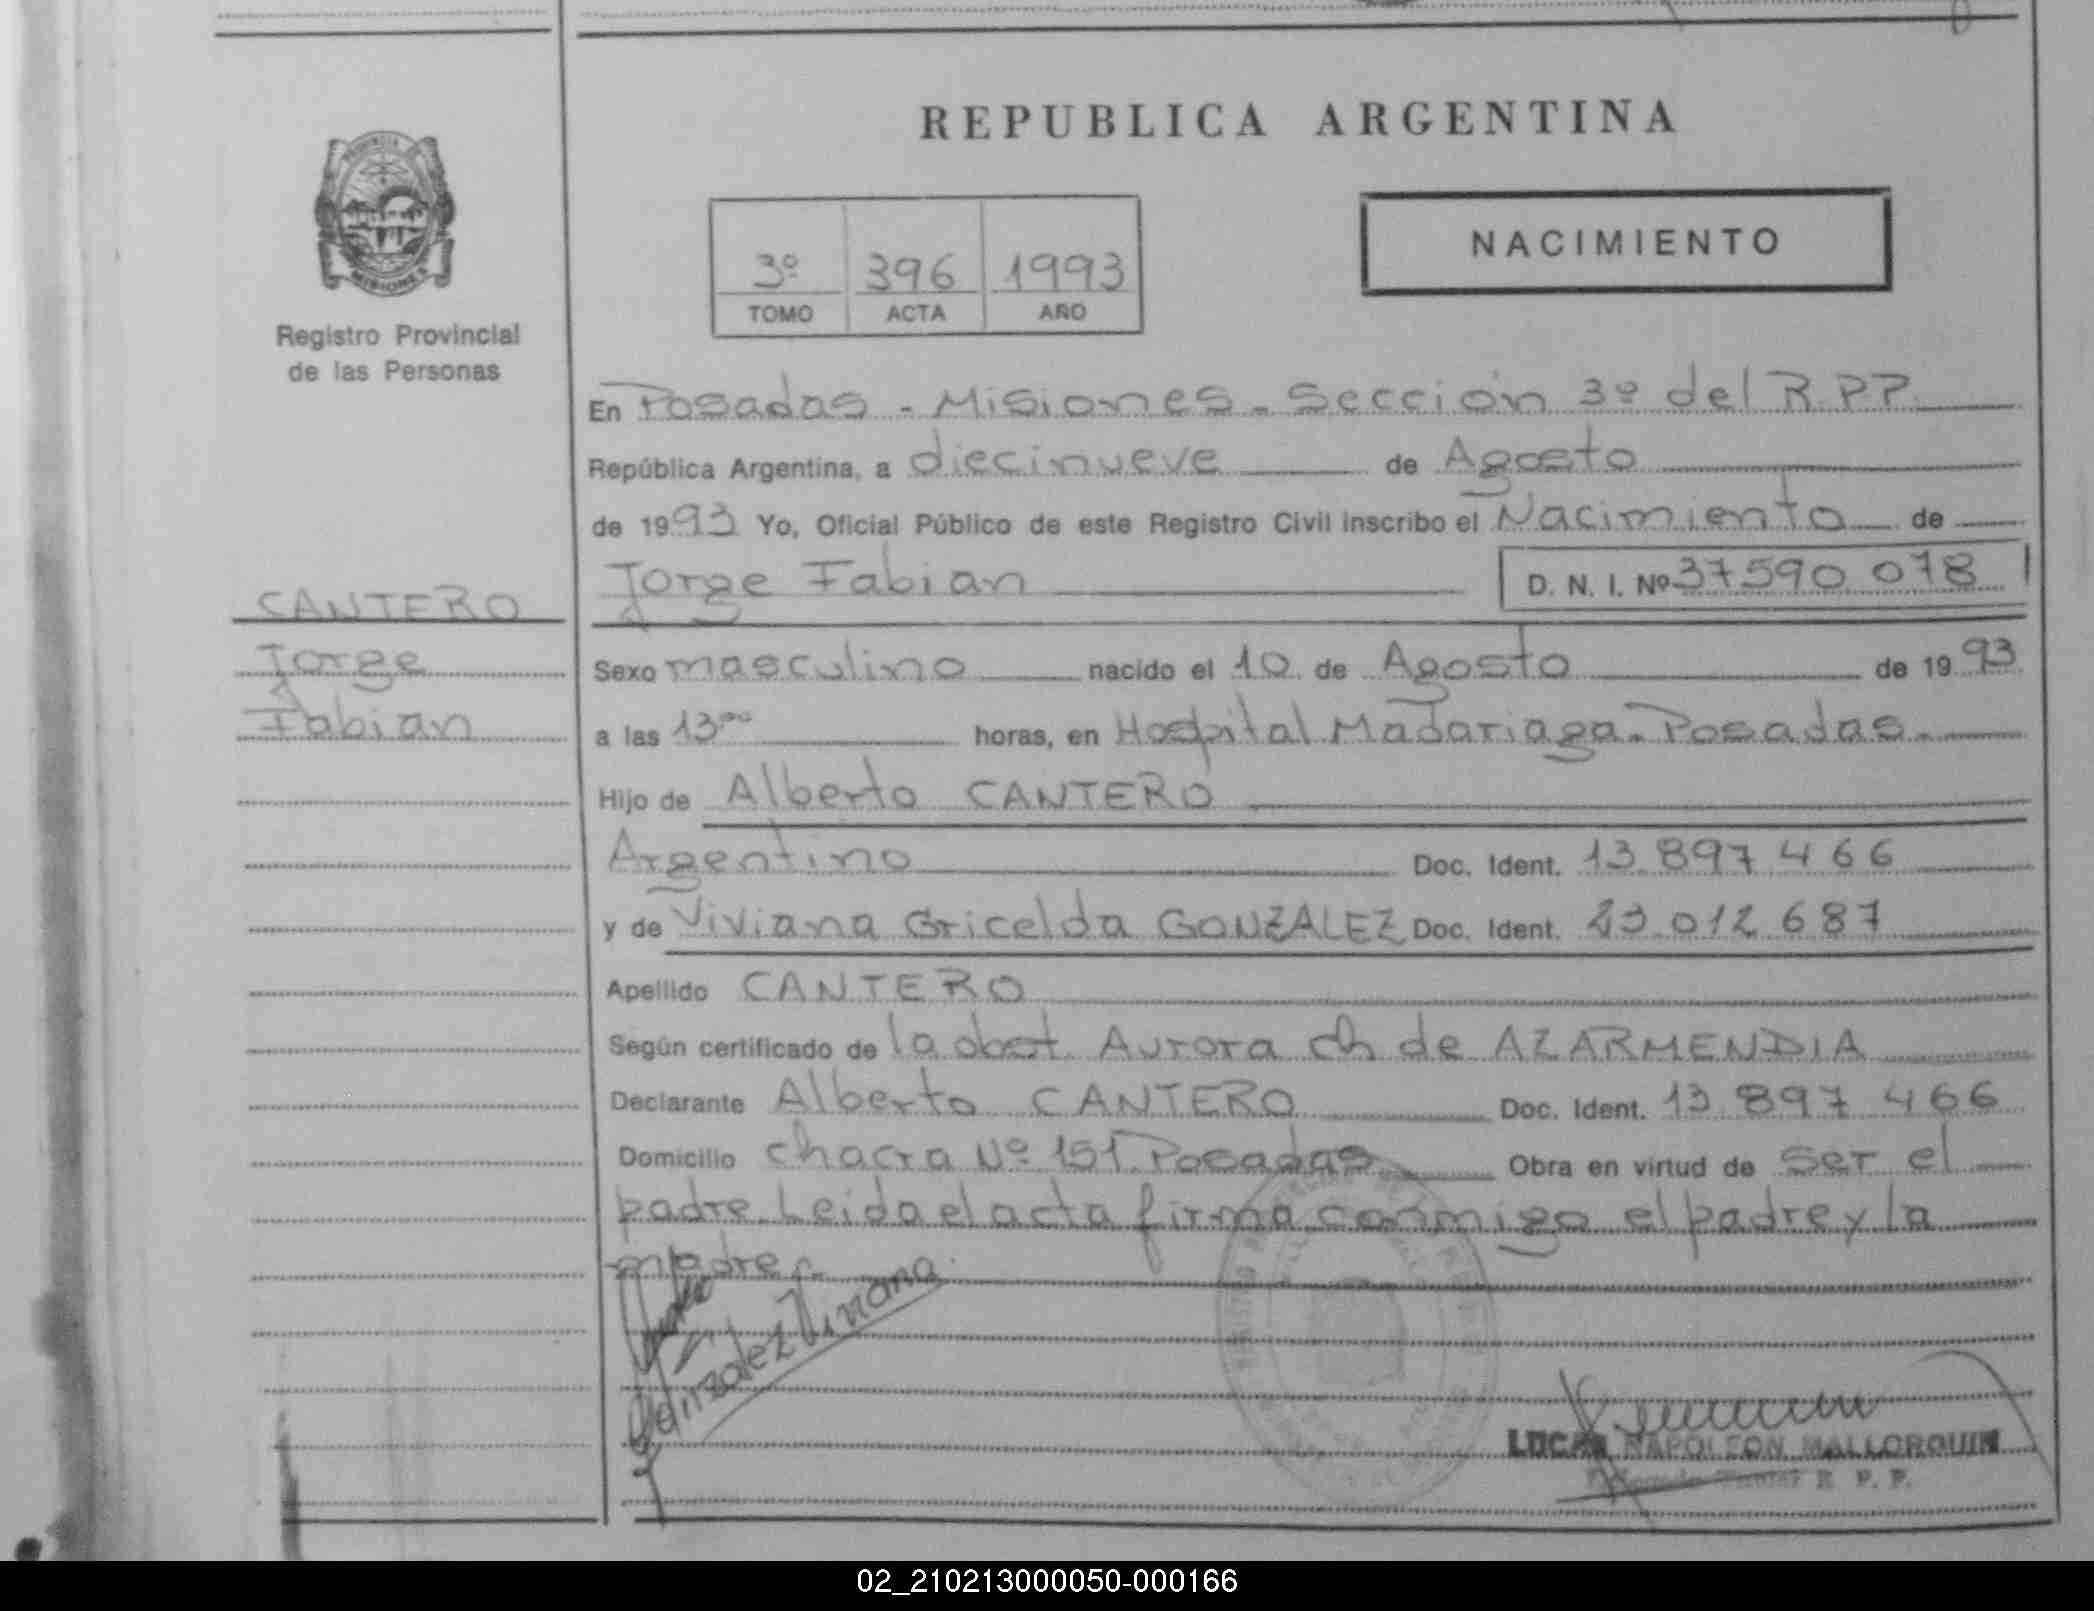 REPUBLICA ARGENTINA
PROVINCIA DE
MISIONES
Registro Provincial
de las Personas
NACIMIENTO
3º 396 1993
TOMO ACTA AÑO
En Posadas - Misiones - Sección 3º del R.P.P.
República Argentina, a diecinueve de Agosto
de 1993 Yo, Oficial Público de este Registro Civil inscribo el Nacimiento de
Jorge Fabian D. N. I. Nº 37590 078
CANTERO
Jorge
Fabian
Sexo masculino nacido el 10 de Agosto de 1993
a las 13ºº horas, en Hospital Madariaga - Posadas -
Hijo de Alberto CANTERO
Argentino Doc. Ident. 13.897 466
y de Viviana Gricelda GONZALEZ Doc. Ident. 23 012 687
Apellido CANTERO
Según certificado de la obst. Aurora ch de AZARMENDIA
Declarante Alberto CANTERO Doc. Ident. 13 897 466
Domicilio chacra Nº 151 Posadas Obra en virtud de ser el
padre. Leida el acta firma conmigo el padre y la
madre -
Gonzalez Viviana
LUCAS NAPOLEON MALLORQUIN
R. P. P.
02_210213000050-000166